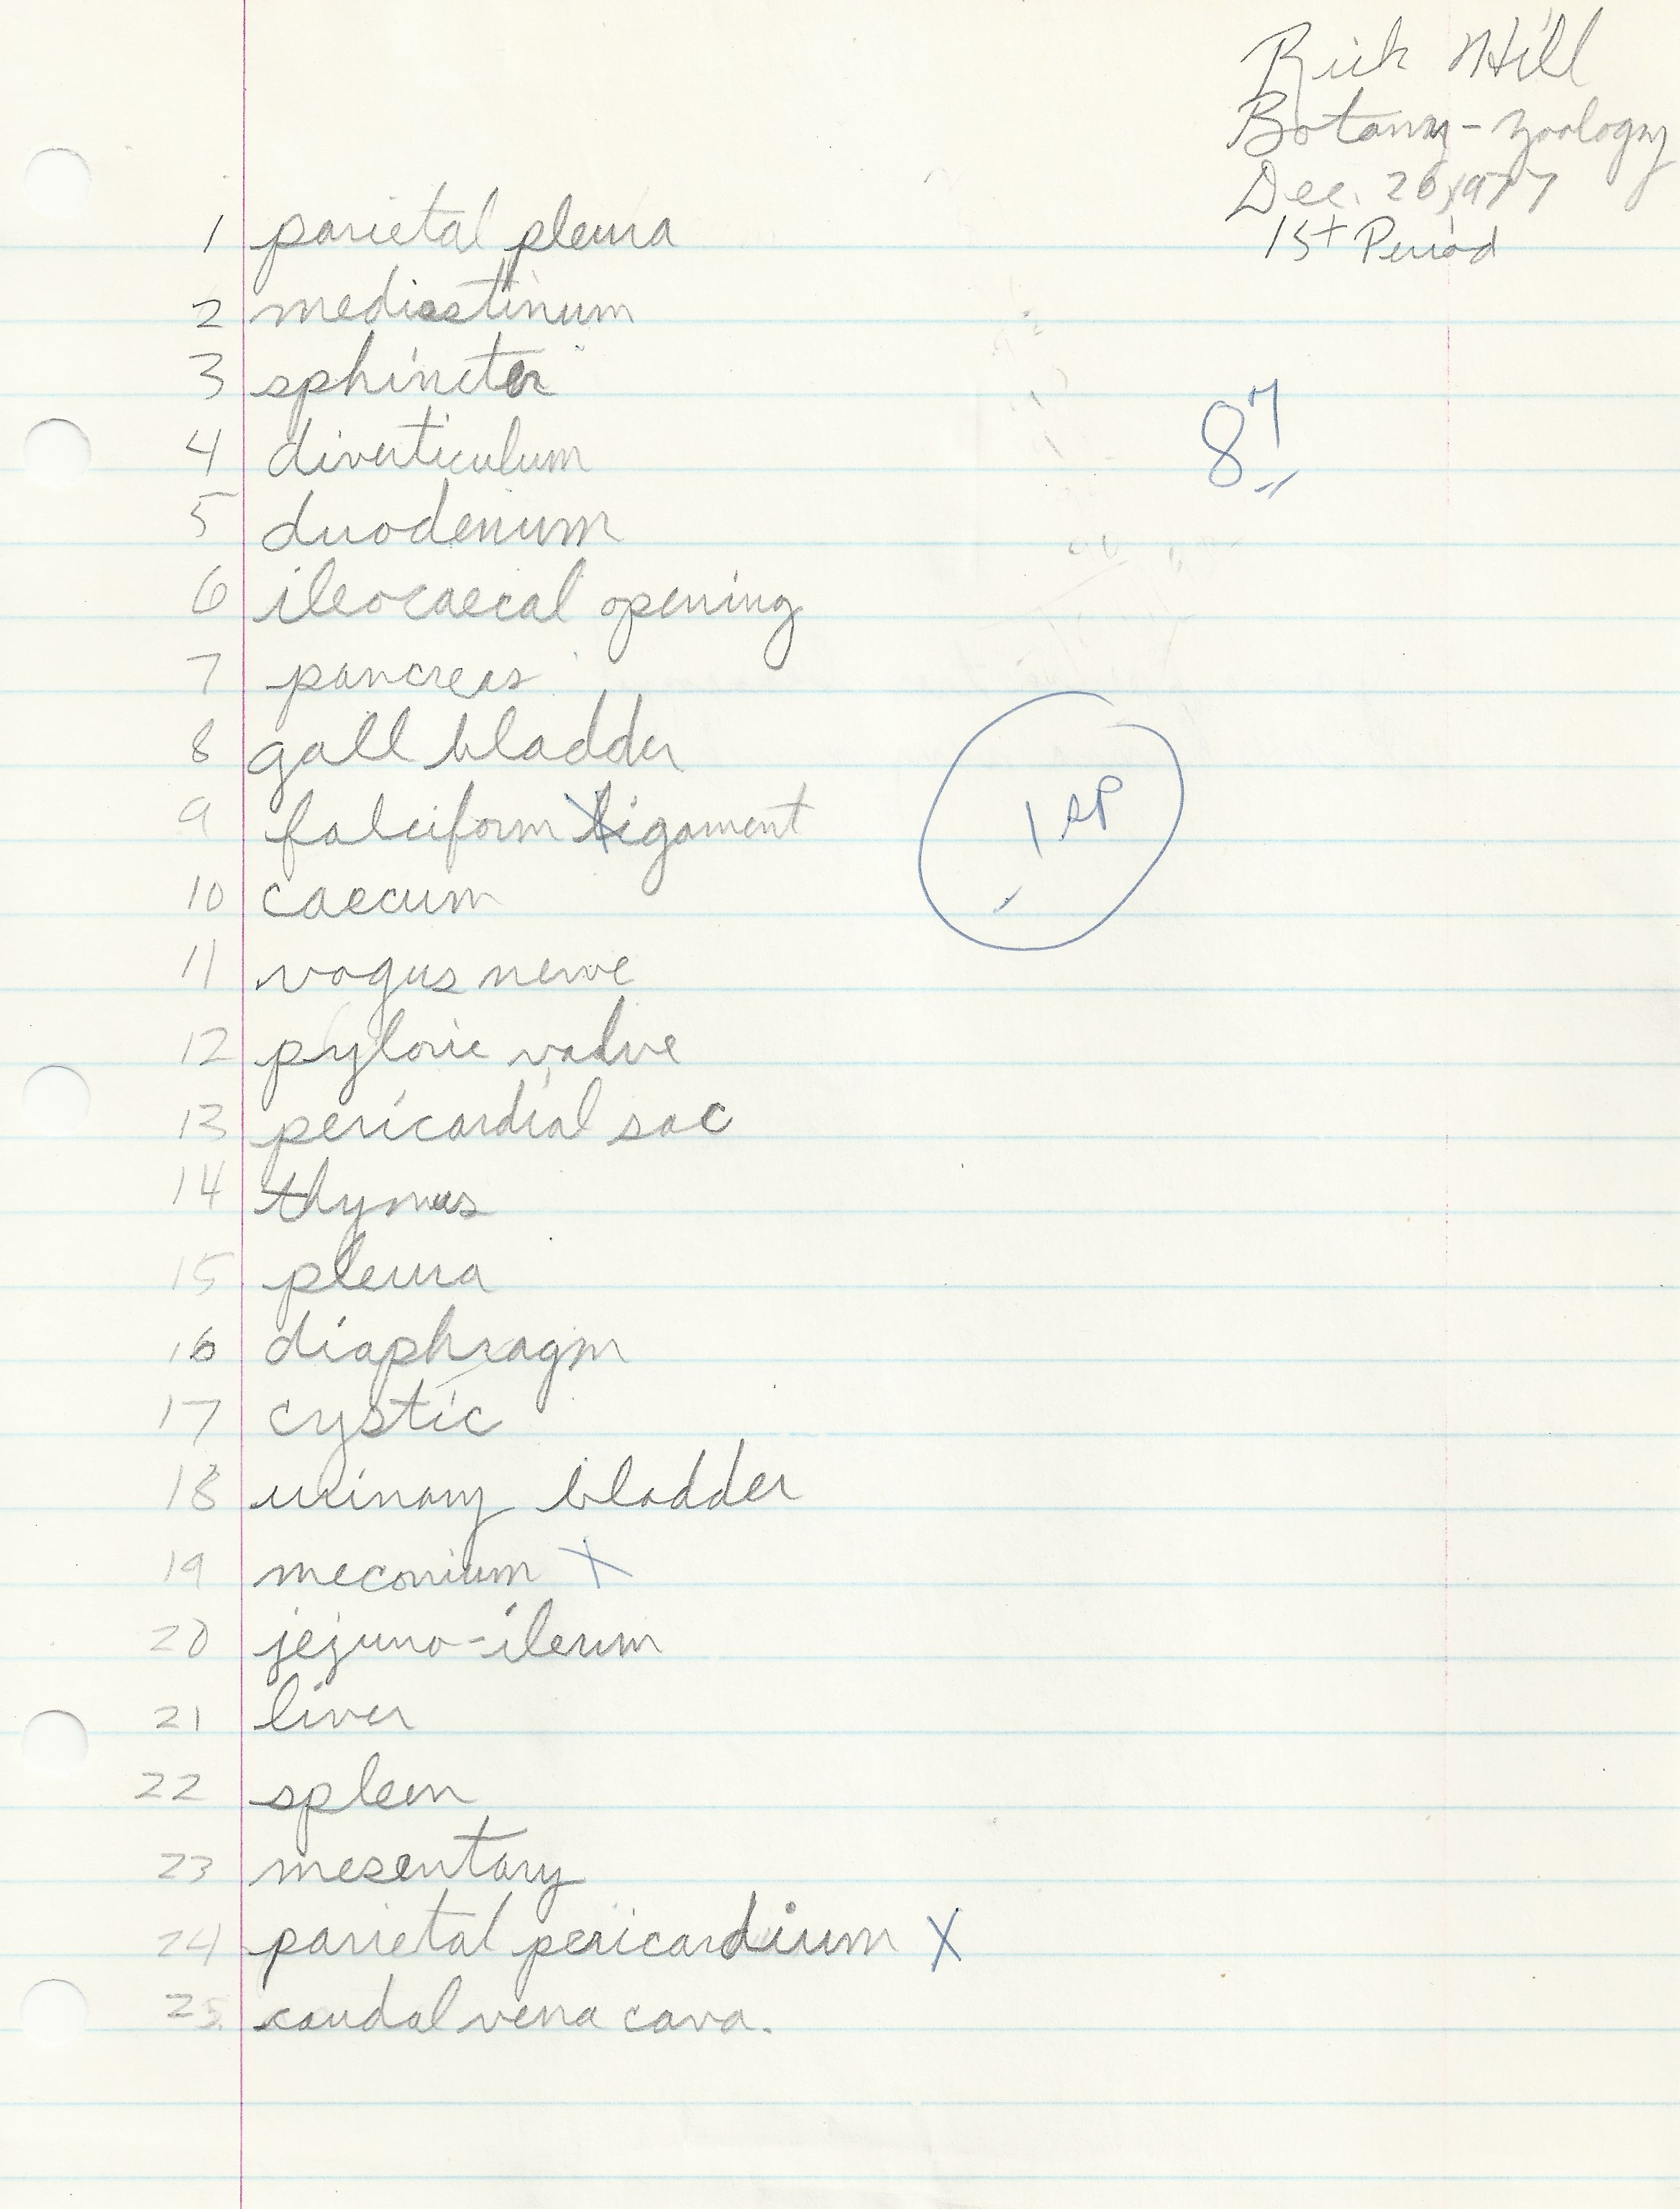 Rick Hill
Botany-Zoology
Dec. 20, 1977
1st Period
1 parietal pleura
2 mediastinum
3 sphincter
87
4 diverticulum
5 duodenum
6 ileocaecal opening
7 pancreas
8 gall bladder
9 falciform ligament
-1 sp
10 caecum
11 vagus nerve
12 pyloric valve
13 pericardial sac
14 thymus
15 pleura
16 diaphragm
17 cystic
18 urinary bladder
19 meconium X
20 jejuno-ileum
21 liver
22 spleen
23 mesentary
24 parietal pericardium X
25. caudal vena cava.